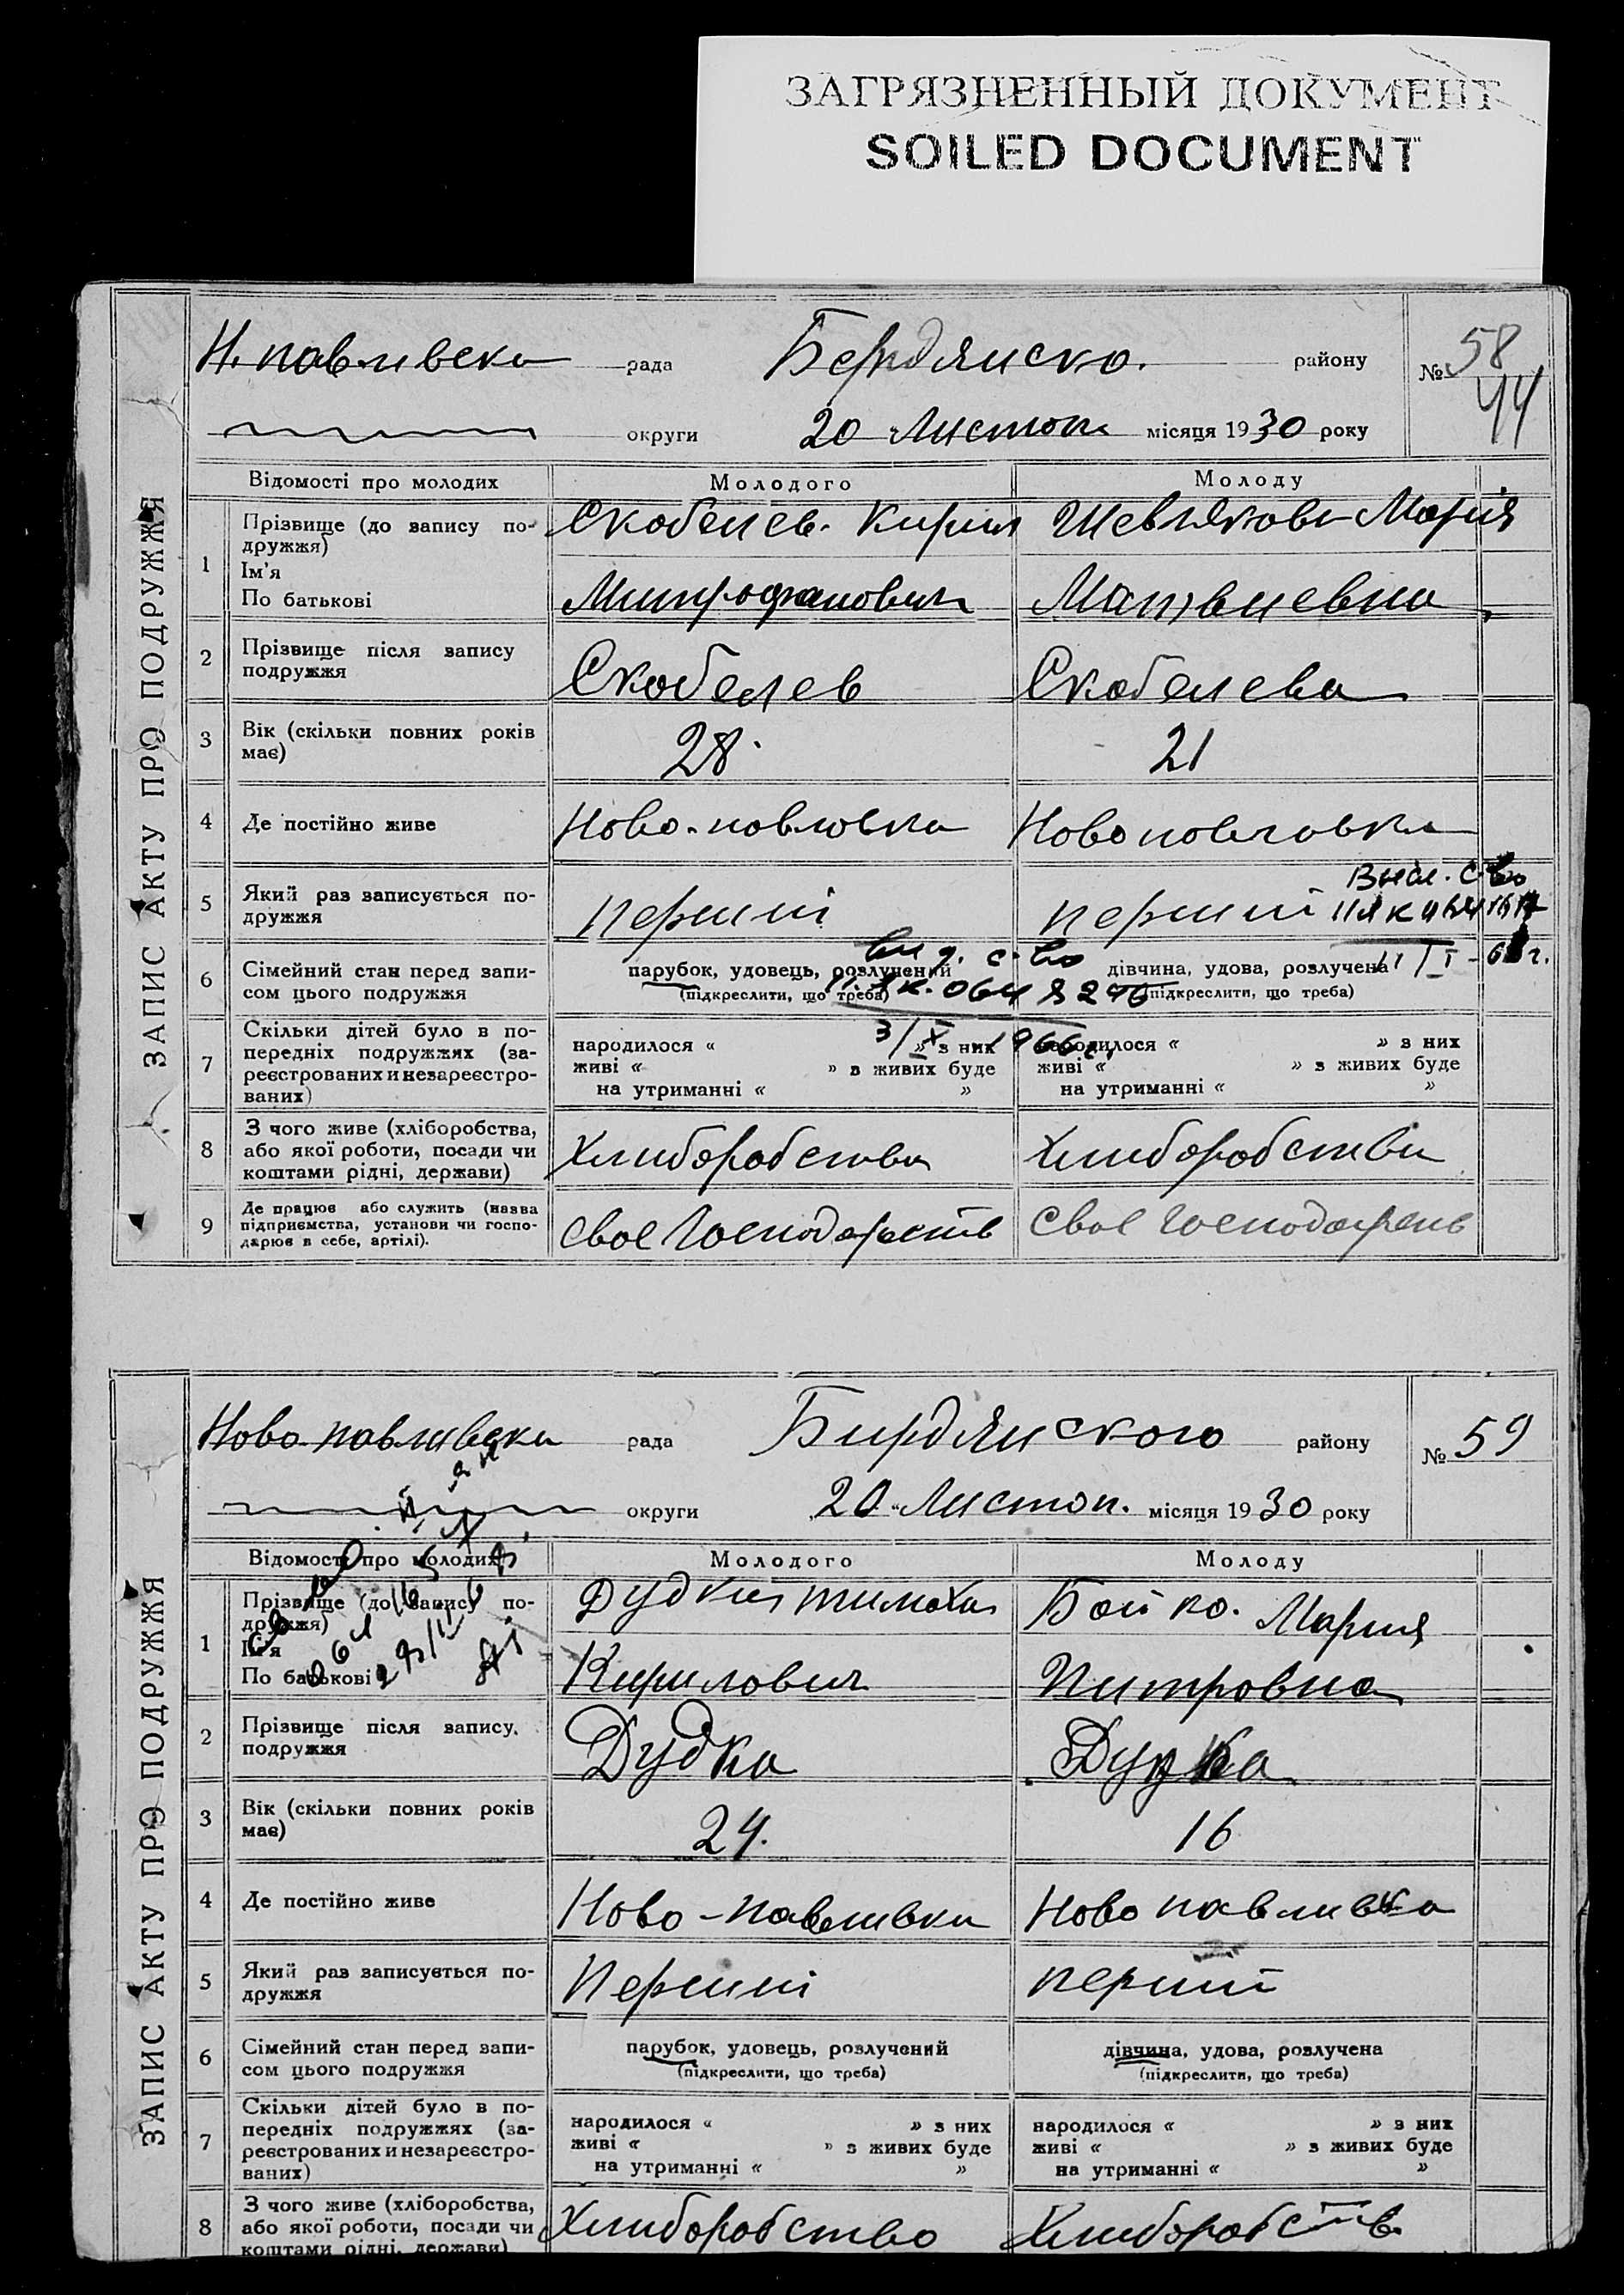 ЗАГРЯЗНЕННЫЙ ДОКУМЕНТ
SOILED DOCUMENT
ЗАПИС АКТУ ПРО ПОДРУЖЖЯ
Н. павливска рада Бердянско. району № 58
44
округи 20 Листоп місяця 1930 року
Відомості про молодих Молодого Молоду
1 Прізвище (до запису по-
дружжя)
Ім'я
По батькові
Скобелев. Кирил Шевлякова Марія
Митрофанович Матвиевна
2 Прізвище після запису
подружжя
Скобелев Скобелева
3 Вік (скільки повних років
має)
28 21
4 Де постійно живе Ново-павловка Новопавловка
5 Який раз записується по-
дружжя
перший перший
6 Сімейний стан перед запи-
сом цього подружжя
парубок, удовець, розлучений дівчина, удова, розлучена
(підкреслити, що треба) (підкреслити, що треба)
3/X 1966г.
7 Скільки дітей було в по-
передніх подружжях (за-
реєстрованих и незареєстро-
ваних)
народилося « » з них народилося « » з них
живі « » з живих буде живі « » з живих буде
на утриманні « » на утриманні « »
8 З чого живе (хліборобства,
або якої роботи, посади чи
коштами рідні, держави)
Хлиборобства Хлиборобства
9 Де працює або служить (назва
підприємства, установи чи госпо-
дарює в себе, артілі).
своє Господарств своє Господарств
ЗАПИС АКТУ ПРО ПОДРУЖЖЯ
Ново-павливска рада Бирдянского району № 59
округи 20 Листоп. місяця 1930 року
Відомості про молодих Молодого Молоду
1 Прізвище (до запису по-
дружжя)
Ім'я
По батькові
Дудка Бойко. Мария
Кирилович Питровна
2 Прізвище після запису
подружжя
Дудка Дудка
3 Вік (скільки повних років
має)
24. 16
4 Де постійно живе Ново-павливка Ново павливка
5 Який раз записується по-
дружжя
Перший перший
6 Сімейний стан перед запи-
сом цього подружжя
парубок, удовець, розлучений дівчина, удова, розлучена
(підкреслити, що треба) (підкреслити, що треба)
7 Скільки дітей було в по-
передніх подружжях (за-
реєстрованих и незареєстро-
ваних)
народилося « » з них народилося « » з них
живі « » з живих буде живі « » з живих буде
на утриманні « » на утриманні « »
8 З чого живе (хліборобства,
або якої роботи, посади чи
коштами рідні, держави)
Хлиборобство Хлиборобств